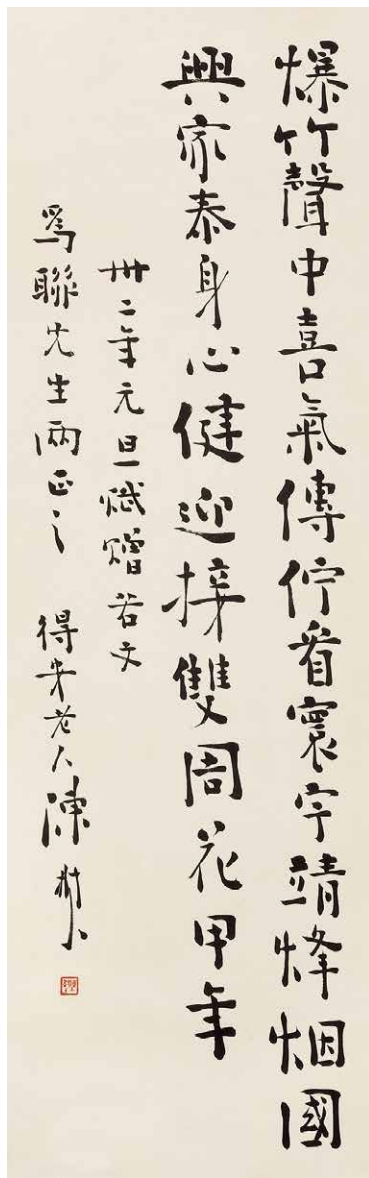 爆竹聲中喜氣傳佇看寰宇靖烽烟國
興家泰身心健迎接雙周花甲年
卅二年元旦賦贈若文
為聯先生兩正之 得老人陳樹人